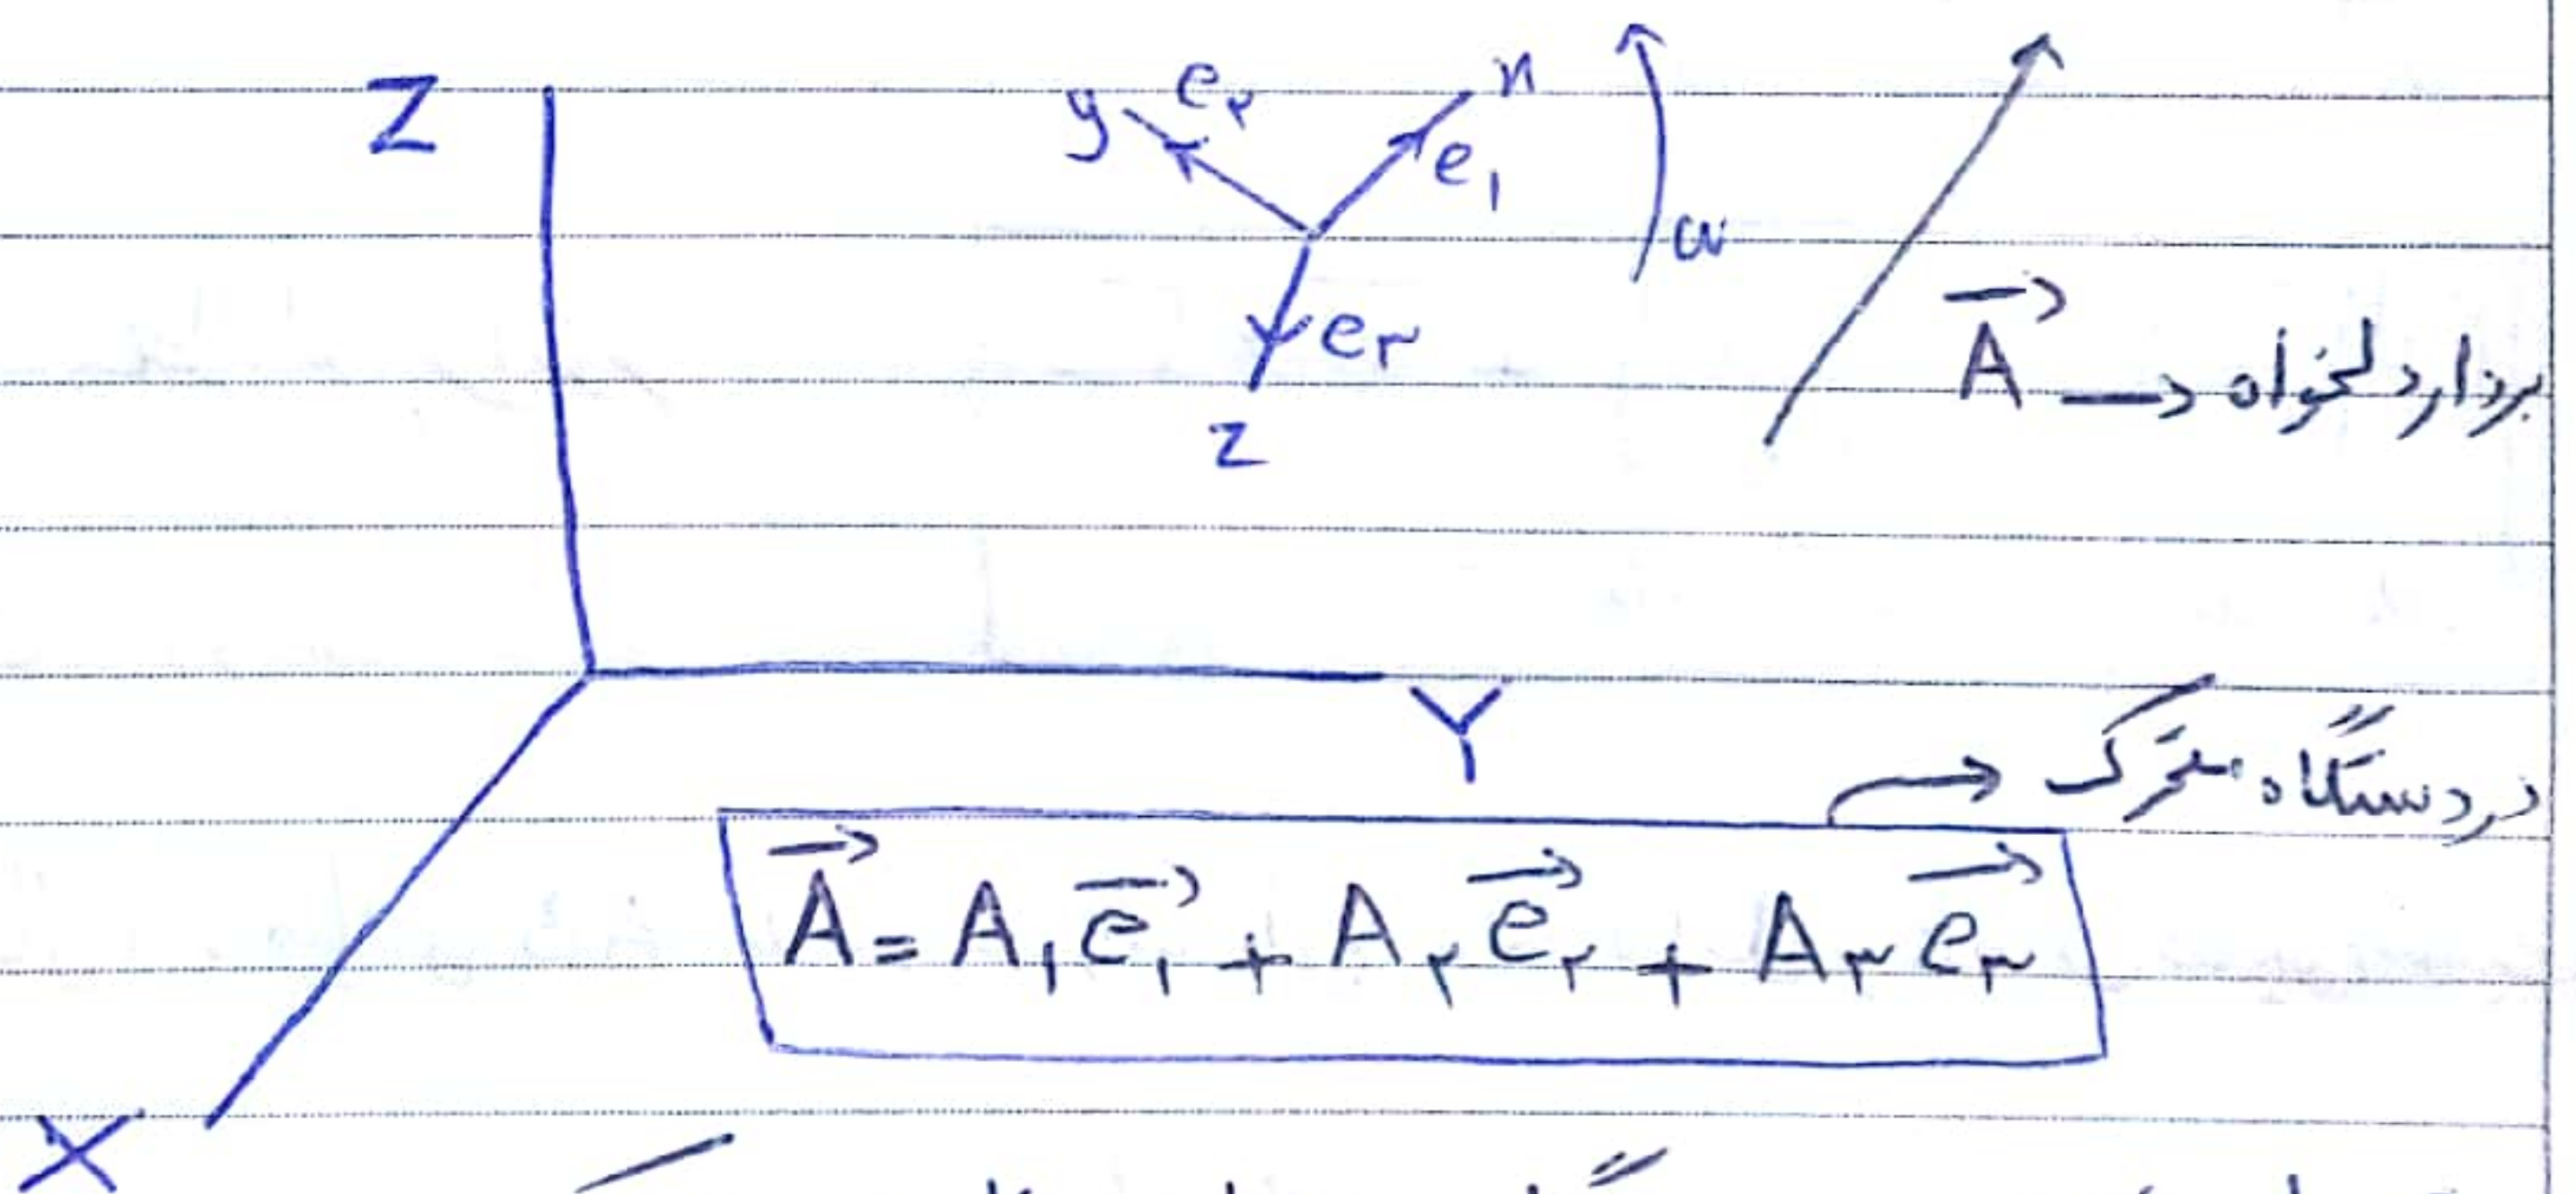 Z
y e۲ x e۱
ω
e۳
z
A → بردار دلخواه
Y
در دستگاه متحرک
A = A۱ e۱ + A۲ e۲ + A۳ e۳
X